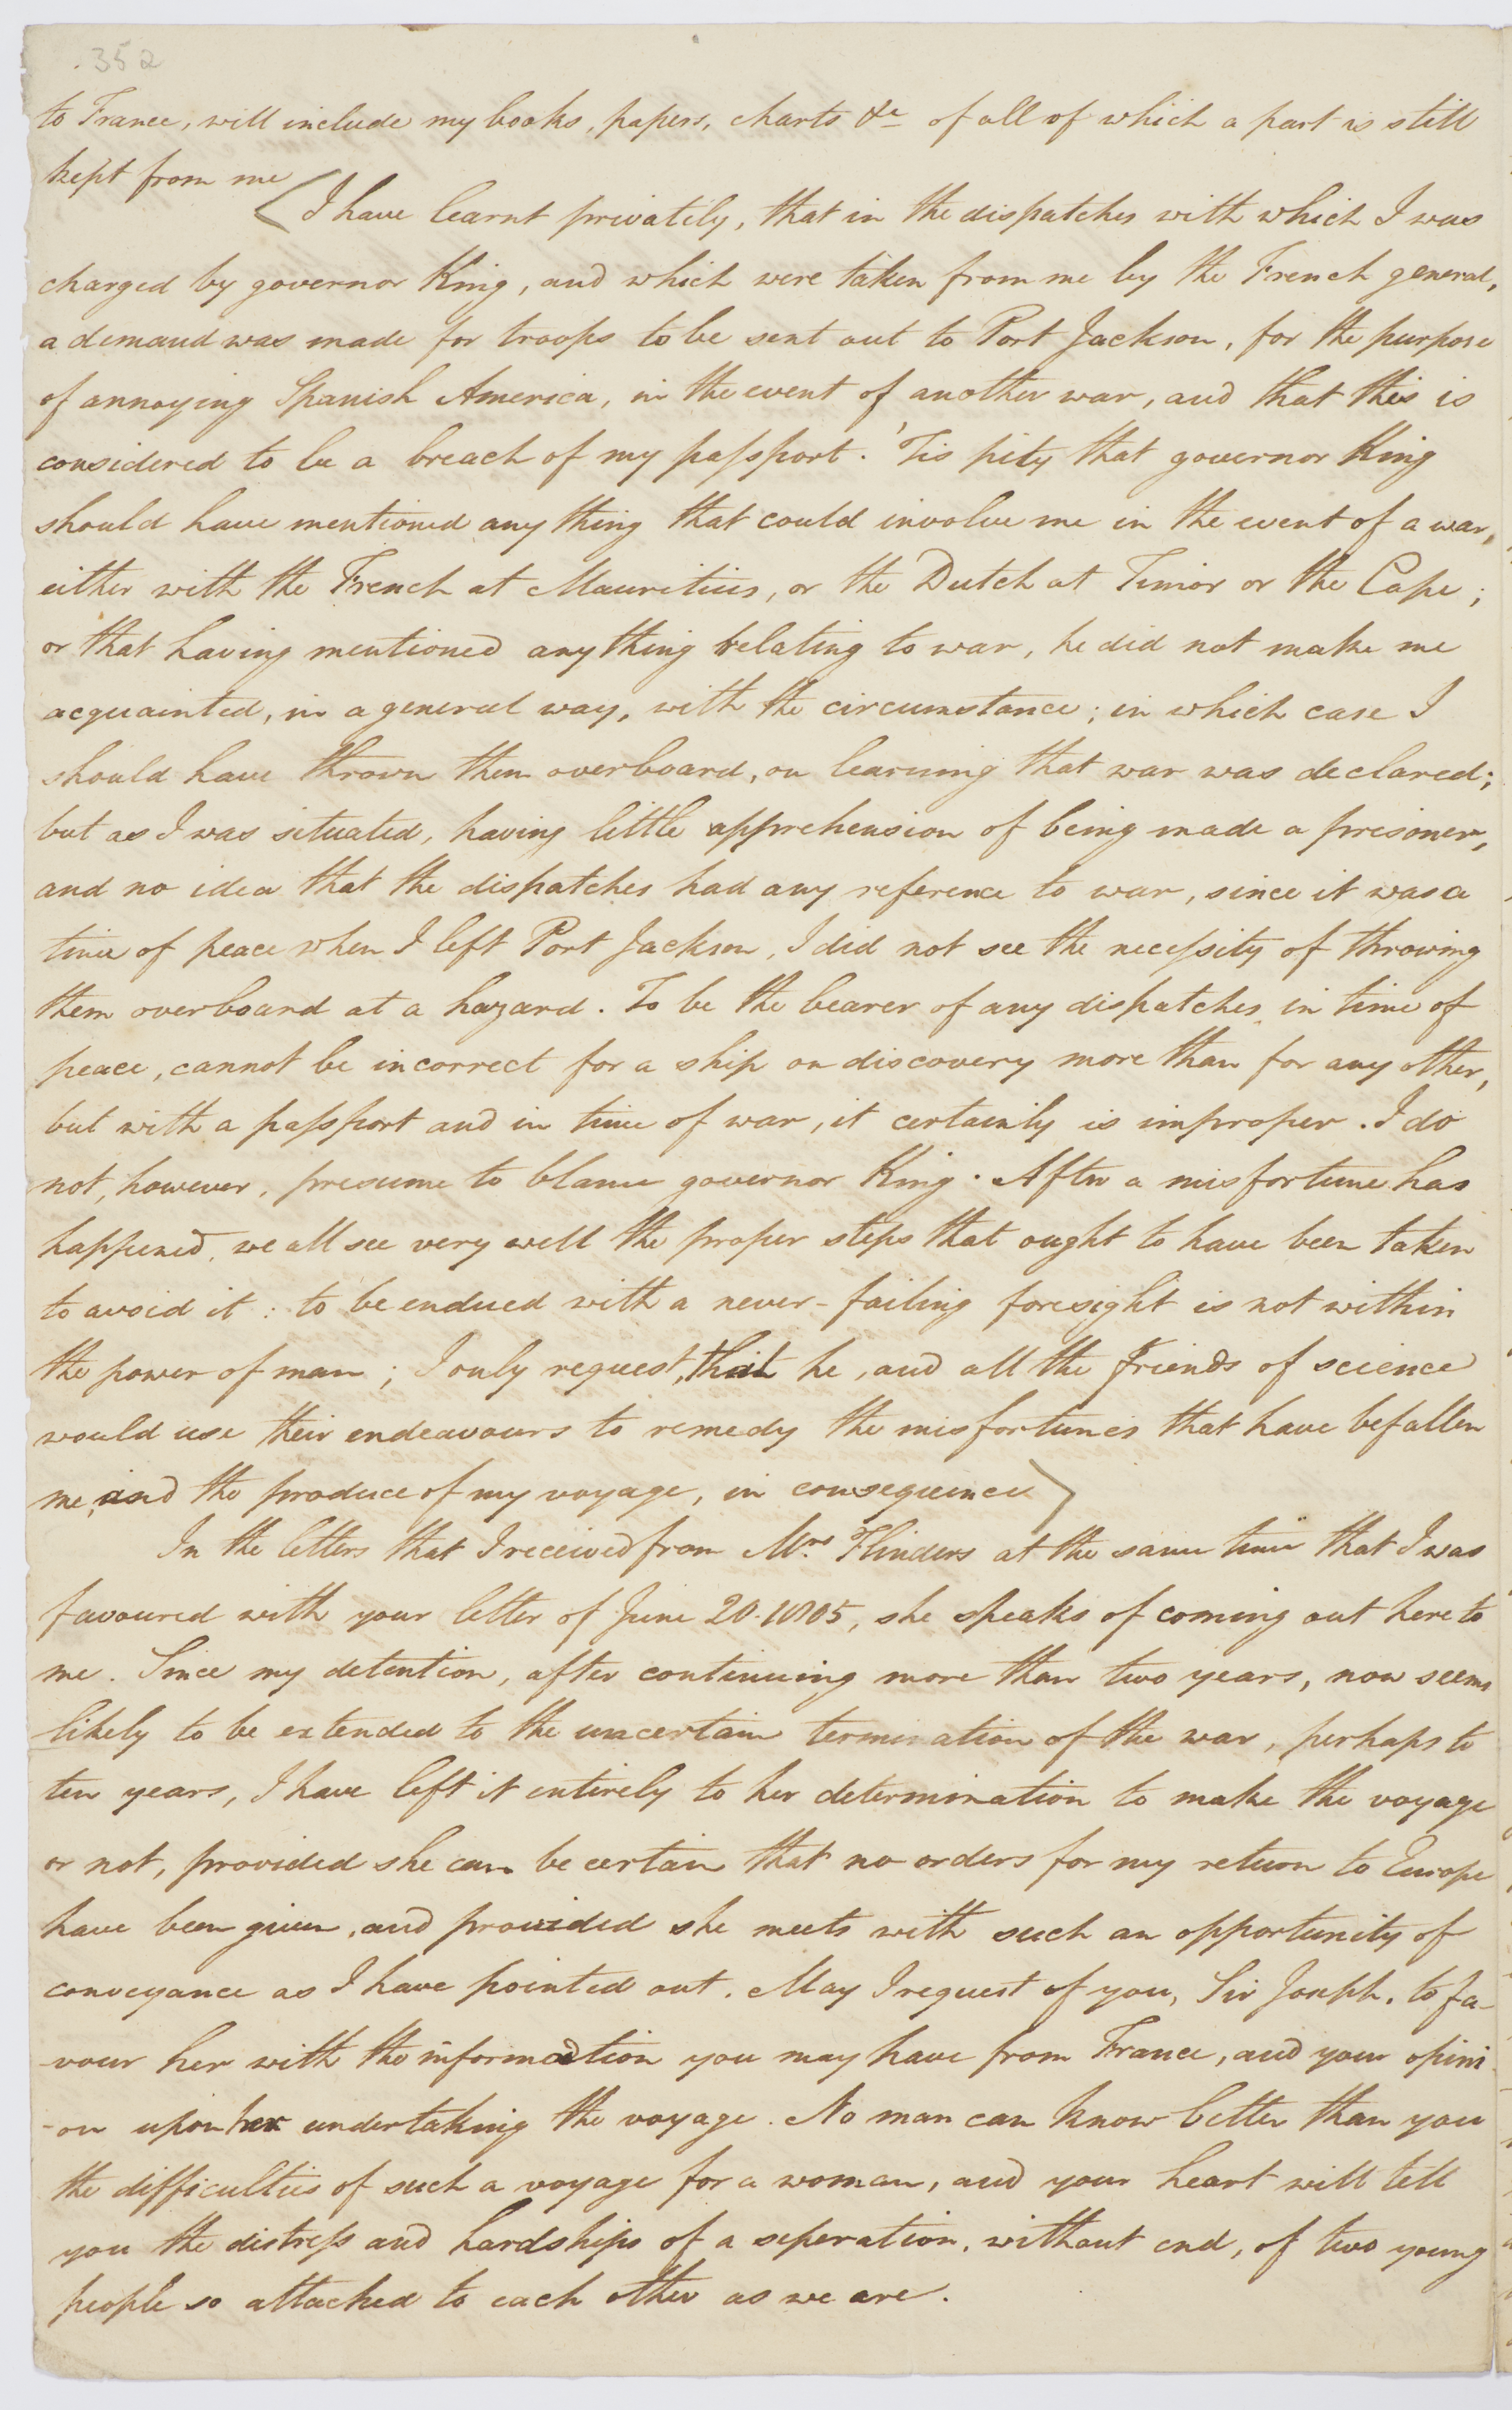 .352
to France, will include my books, papers, charts &c of all of which a part is still
kept from me
I have learnt privately, that in the dispatches with which I was
charged by governor King, and which were taken from me by the French general,
a demand was made for troops to be sent out to Port Jackson, for the purpose
of annoying Spanish America, in the event of another war, and that this is
considered to be a breach of my paſsport. 'Tis pity that governor King
should have mentioned any thing that could involve me in the event of a war,
either with the French at Mauritius, or the Dutch at Timor or the Cape;
or that having mentioned any thing relating to war, he did not make me
acquainted, in a general way, with the circumstance; in which case I
should have thrown them overboard, on learning that war was declared;
but as I was situated, having little apprehension of being made a prisoner,
and no idea that the dispatches had any reference to war, since it was a
time of peace when I left Port Jackson, I did not see the neceſsity of throwing
them overboard at a hazard. To be the bearer of any dispatches in time of
peace, cannot be incorrect for a ship on discovery more than for any other,
but with a paſsport and in time of war, it certainly is improper. I do
not, however, presume to blame governor King. After a misfortune has
happened, we all see very well the proper steps that ought to have been taken
to avoid it: to be endued with a never-failing foresight is not within
the power of man; I only request, that he, and all the friends of science
would use their endeavours to remedy the misfortunes that have befallen
me, and the produce of my voyage, in consequence
In the letters that I received from Mrs. Flinders at the same time that I was
favoured with your letter of June 20. 1805, she speaks of coming out here to
me. Since my detention, after continuing more than two years, now seems
likely to be extended to the uncertain termination of the war, perhaps to
ten years, I have left it entirely to her determination to make the voyage
or not, provided she can be certain that no orders for my return to Europe
have been given, and provided she meets with such an opportunity of
conveyance as I have pointed out. May I request of you, Sir Joseph, to fa-
-vour her with the information you may have from France, and your opini
-on upon her undertaking the voyage. No man can know better than you
the difficulties of such a voyage for a woman, and your heart will tell
you the distreſs and hardships of a seperation, without end, of two young
people so attached to each other as we are.